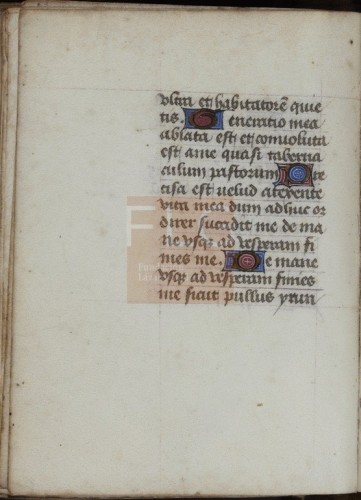 ultra et habitatorē quie
tis. Generatio mea
ablata est et convoluta
est a me quasi taberna
culum pastorum Pre
cisa est velud a texente
vita mea dum adhuc or
direr succidit me de ma
ne usqȝ ad vesperam fi
nies me. De mane
usqȝ ad vesperam finies
me sicut pullus yrun